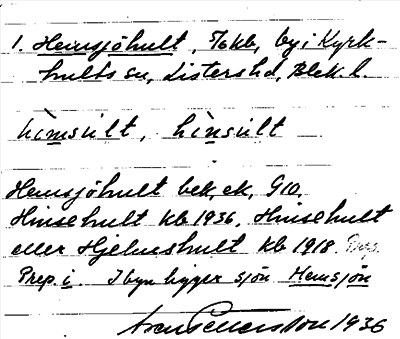 1. Hemsjöhult, 5/6 kb, by i Kyrk-
hults sn, Listers hd, Blek. l.
hìmsùlt, hìnsùlt
Hemsjöhult bek, ek, G10.
Hinsehult kb 1936, Hinsehult
eller Hjelmshult kb 1918.
Prep. i. I byn ligger sjön Hemsjön
1936